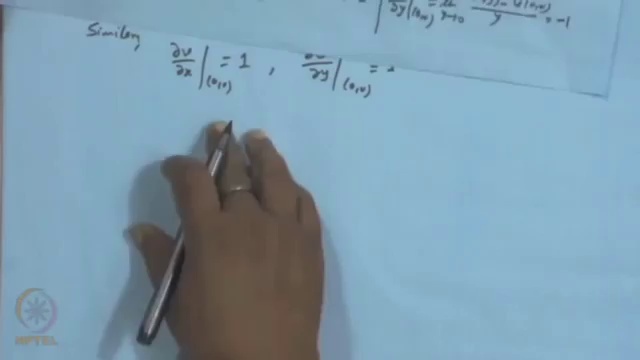 ∂y |(0,0) = lim y→0 y = -1
Similarly
∂v/∂x |(0,0) = 1 , ∂v/∂y |(0,0) =
NPTEL